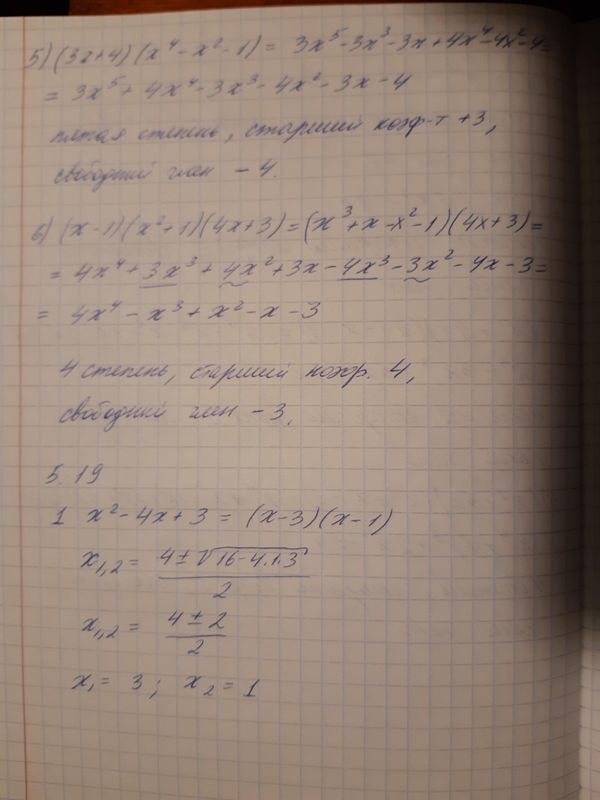 5) (3x+4)(x⁴-x²-1) = 3x⁵-3x³-3x+4x⁴-4x²-4=
= 3x⁵+4x⁴-3x³-4x²-3x-4
пятая степень, старший коэф-т +3,
свободный член -4.
6) (x-1)(x²+1)(4x+3)=(x³+x-x²-1)(4x+3)=
= 4x⁴+3x³+4x²+3x-4x³-3x²-4x-3=
= 4x⁴-x³+x²-x-3
4 степень, старший коэф. 4,
свободный член -3.
5.19
1 x²-4x+3 = (x-3)(x-1)
x₁,₂= (4±√16-4·1·3)/2
x₁,₂= (4±2)/2
x₁= 3; x₂=1